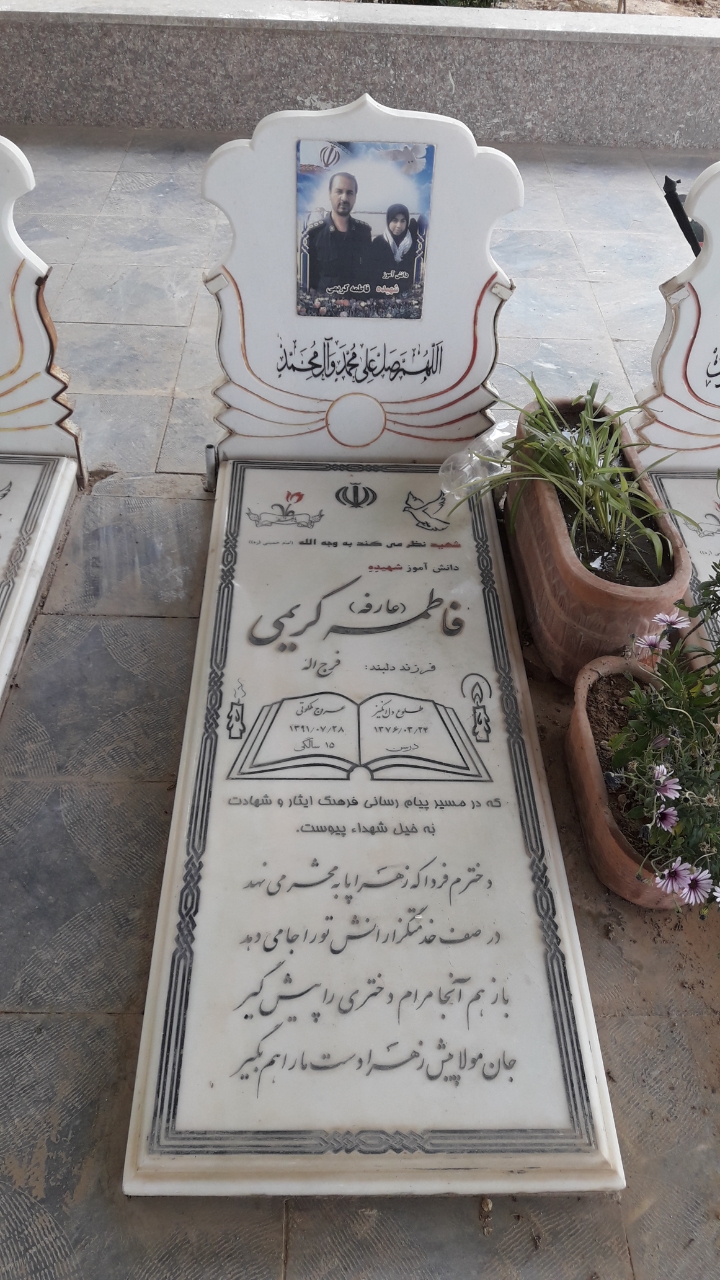 دانش آموز
شهیده فاطمه کریمی
اللهم صل علی محمد وآل محمد
شهید نظر می کند به وجه الله
دانش آموز شهیده
فاطمه (عارفه) کریمی
فرزند دلبند: فرج اله
طلوع دل انگیز
۱۳۷۶/۰۳/۲۴
درس
عروج ملکوتی
۱۳۹۱/۰۷/۲۸
۱۵ سالگی
که در مسیر پیام رسانی فرهنگ ایثار و شهادت
به خیل شهداء پیوست.
دخترم فردا که زهرا پا به محشر می نهد
در صف خدمتگزارانش تو را جا می دهد
باز هم آنجا مرام دختری را پیش گیر
جان مولا پیش زهرا دست ما را هم بگیر